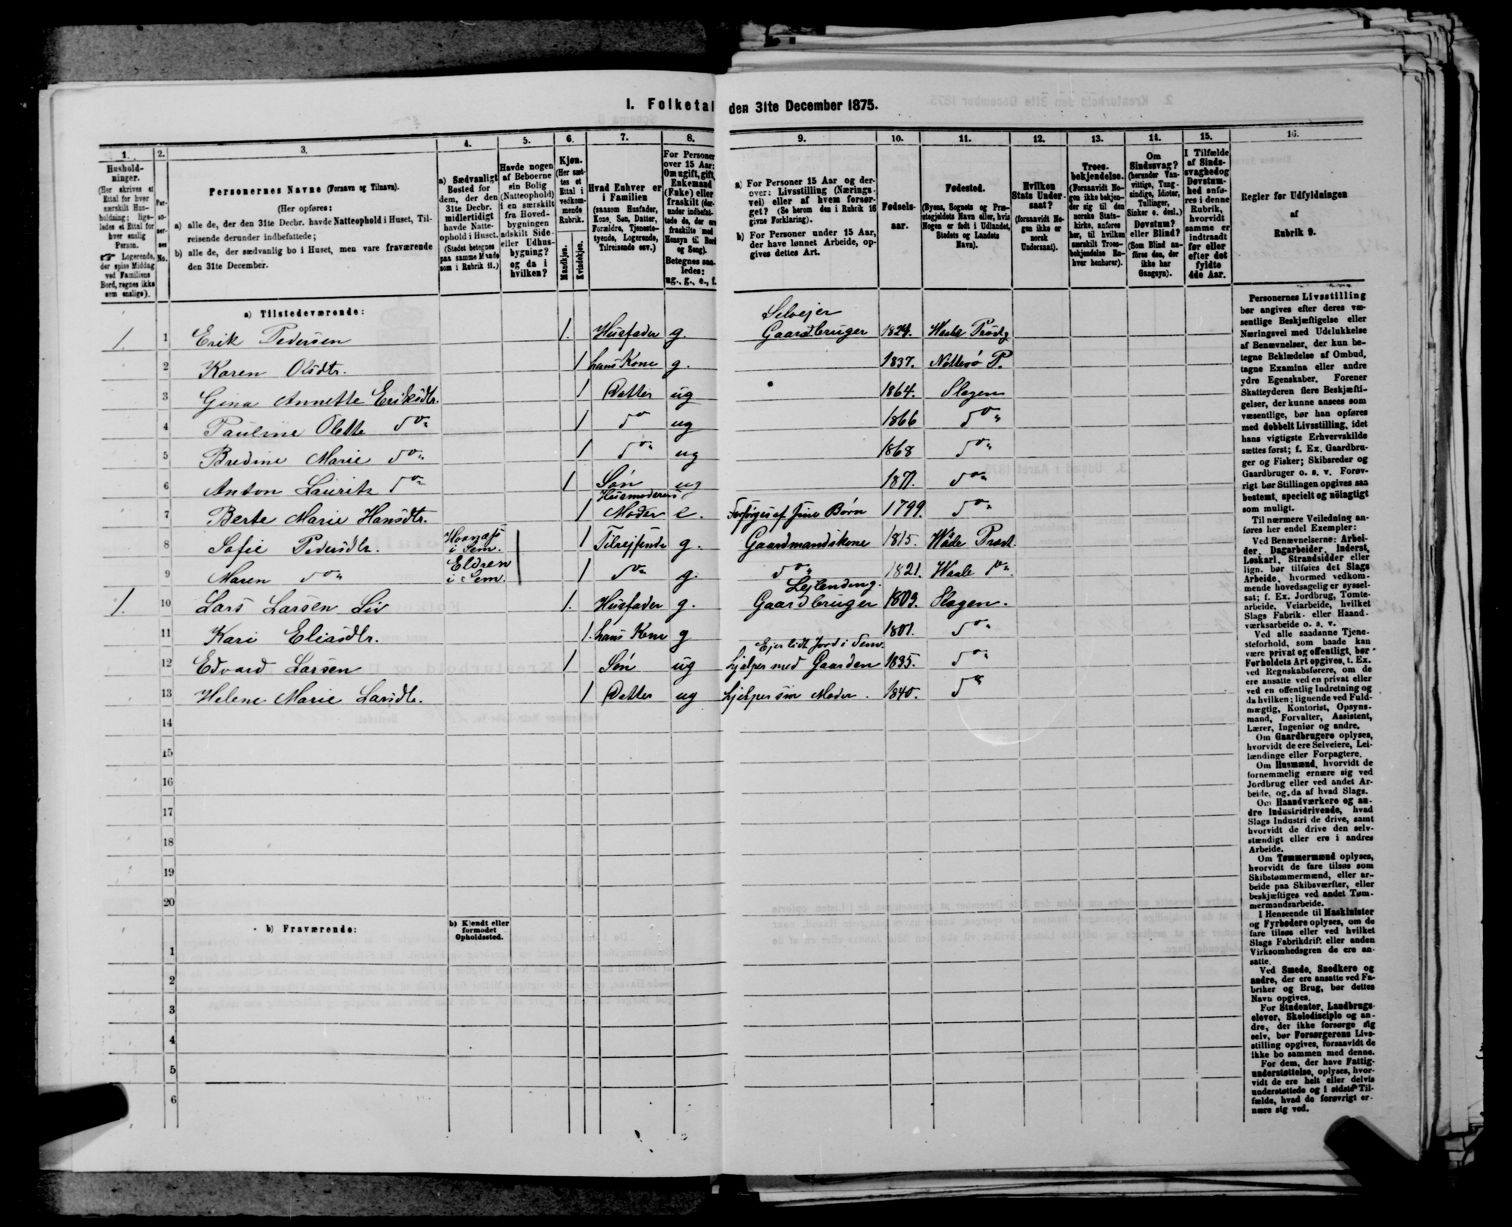 I. Folketal den 31te December 1875.
1.
Hushold-
ninger.
(Her skrives et
Ettal for hver
særskilt Hus-
holdning; lige-
ledes et Ettal for
hver enslig
Person.
☞ Logerende,
der spise Middag
ved Familiens
Bord, regnes ikke
som enslige).
2.
Per-
so-
ner-
nes
No.
3.
Personernes Navne (Fornavn og Tilnavn).
(Her opføres:
a) alle de, der den 31te Decbr. havde Natteophold i Huset, Til-
reisende derunder indbefattede;
b) alle de, der sædvanlig bo i Huset, men vare fraværende
den 31te December.
4.
a) Sædvanligt
Bosted for
dem, der den
31te Decbr.
midlertidigt
havde Natte-
ophold i Huset.
(Stedet betegnes
paa samme Maade
som i Rubrik 11.)
5.
Havde nogen
af Beboerne
sin Bolig
(Natteophold)
i en særskilt
fra Hoved-
bygningen
adskilt Side-
eller Udhus-
bygning?
og da i
hvilken?
6.
Kjøn.
(Her sæt-
tes et
Ettal i
vedkom-
mende
Rubrik.)
Mandkjøn.
Kvindekjøn.
7.
Hvad Enhver er
i Familien
(saasom Husfader,
Kone, Søn, Datter,
Forældre, Tjeneste-
tyende, Logerende,
Tilreisende osv.)
8.
For Personer
over 15 Aar:
Om ugift, gift,
Enkemand
(Enke) eller
fraskilt
Betegnes saa-
ledes:
ug., g., e., f.
9.
a) For Personer 15 Aar og der-
over: Livsstilling (Nærings-
vei) eller af hvem forsør-
get? (Se herom den i Rubrik 16
givne Forklaring).
b) For Personer under 15 Aar,
der have lønnet Arbeide, op-
gives dettes Art.
10.
Fødsels-
aar.
11.
Fødested.
(Byens, Sognets og Præ-
stegjeldets Navn eller, hvis
Nogen er født i Udlandet,
Stedets og Landets
Navn).
12.
Hvilken
Stats Under-
saat?
(forsaavidt No-
gen ikke er
norsk
Undersaat).
13.
Troes-
bekjendelse.
(Forsaavidt No-
gen ikke bekjen-
der sig til den
norske Stats-
kirke, anføres
her, til hvilken
særskilt Troes-
bekjendelse En-
hver henhører).
14.
Om
Sindssvag?
(herunder Van-
vittige, Tung-
sindige, Idioter,
Tullinger,
Sinker o. desl.)
Døvstum?
eller Blind?
(Som Blind an-
føres den, der
ikke har
Gangsyn).
15.
I Tilfælde
af Sinds-
svaghed og
Døvstum-
hed anfø-
res i denne
Rubrik,
hvorvidt
samme er
indtraadt
før eller
efter det
fyldte
4de Aar.
16.
Regler for Udfyldningen
af
Rubrik 9.
a) Tilstedeværende:
1. 1 Erik Pedersen 1. Husfader g. Selveier Gaardbruger 1829. Waale Præstg
2 Karen Olsdtr. 1 hans Kone g. 1837. Nøtterø P.
3 Gina Annette Eriksdtr. 1 Datter ug 1864. Slagen
4 Pauline Olette do 1 do ug 1866 do
5 Bredine Marie do 1 do ug 1868 do
6 Anton Lauritz do 1 Søn ug 1871. do
7 Berte Marie Hansdtr. 1 Husmoderens Moder e. Forsørges af sine Børn 1799. do
8 Sofie Pedersdtr. i Sem. 1 Tilreisende g. Gaardmandskone 1815. Waale Præst.
9 Maren do i Sem. 1 do g. do 1821. Waale do
1. 10 Lars Larsen Liv 1. Husfader g. Leilending. Gaardbruger 1809. Slagen.
11 Kari Elisdtr. 1. hans Kone g 1801. do
12 Edvard Larsen 1 Søn ug Ejer lidt Jord i Sem. hjelper med Gaarden 1835. do
13 Helene Marie Larsdtr. 1 Datter ug hjelper sin Moder. 1840. do
14
15
16
17
18
19
20
b) Fraværende:
b) Kjendt eller
formodet
Opholdssted.
1
2
3
4
5
6
Personernes Livsstilling
bør angives efter deres væ-
sentlige Beskjæftigelse eller
Næringsvei med Udelukkelse
af Benævnelser, der kun be-
tegne Beklædelse af Ombud,
tagne Examina eller andre
ydre Egenskaber. Forener
Skatteyderen flere Beskjæfti-
gelser, der kunne ansees som
væsentlige, bør han opføres
med dobbelt Livsstilling, idet
hans vigtigste Erhvervskilde
sættes først; f. Ex. Gaardbru-
ger og Fisker; Skibsreder og
Gaardbruger o. s. v. Forøv-
rigt bør Stillingen opgives saa
bestemt, specielt og nøiagtigt
som muligt.
Til nærmere Veiledning an-
føres her endel Exempler:
Ved Benævnelserne: Arbei-
der, Dagarbeider, Inderst,
Løskarl, Strandsidder eller
lign. bør tilføies det Slags
Arbeide, hvormed vedkom-
mende hovedsagelig er syssel-
sat; f. Ex. Jordbrug, Tomte-
arbeide, Veiarbeide, hvilket
Slags Fabrik- eller Haand-
værksarbeide o. s. v.
Ved alle saadanne Tjene-
steforhold, som baade kan
være privat og offentligt, bør
Forholdets Art opgives, f. Ex.
ved Regnskabsførere, om de
ere ansatte ved en privat eller
ved en offentlig Indretning og
da hvilken; lignende ved Fuld-
mægtig, Kontorist, Opsyns-
mand, Forvalter, Assistent,
Lærer, Ingeniør og andre.
Om Gaardbrugere oplyses,
hvorvidt de ere Selveiere, Lei-
lændinge eller Forpagtere.
Om Husmænd, hvorvidt de
fornemmelig ernære sig ved
Jordbrug eller ved andet Ar-
beide, og da af hvad Slags.
Om Haandværkere og an-
dre Industridrivende, hvad
Slags Industri de drive, samt
hvorvidt de drive den selv-
stændigt eller ere i andres
Arbeide.
Om Tømmermænd oplyses,
hvorvidt de fare tilsøs som
Skibstømmermænd, eller ar-
beide paa Skibsværfter, eller
beskjæftiges ved andet Tøm-
mermandsarbeide.
I Henseende til Maskinister
og Fyrbødere oplyses, om de
fare tilsøs eller ved hvilket
Slags Fabrikdrift eller anden
Virksomhedsgren de ere an-
satte.
Ved Smede, Snedkere og
andre, der ere ansatte ved Fa-
briker og Brug, bør dettes
Navn opgives.
For Studenter, Landbrugs-
elever, Skoledisciple og an-
dre, der ikke forsørge sig
selv, bør Forsørgerens Livs-
stilling opgives, forsaavidt de
ikke bo sammen med denne.
For dem, der have Fattig-
understøttelse, oplyses, hvor-
vidt de ere helt eller delvis
understøttede og i sidste Til-
fælde, hvad de forøvrigt er-
nære sig ved.